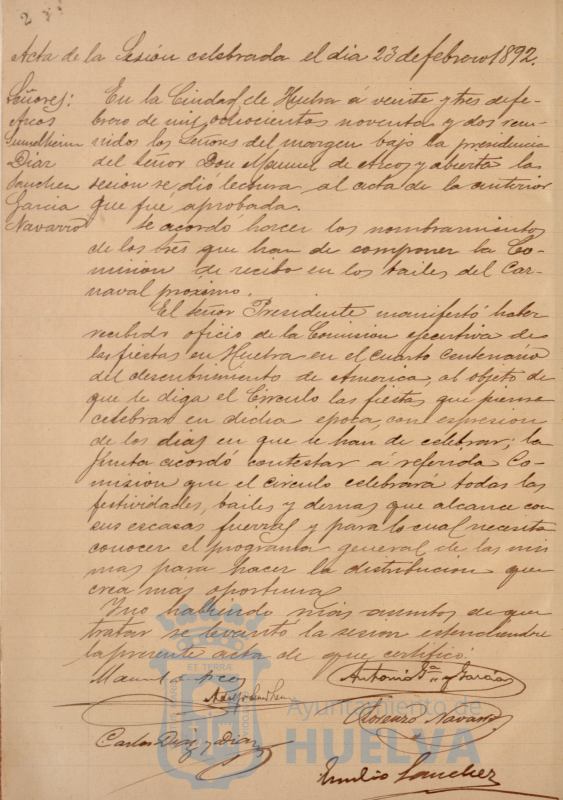 Acta de la Sesión celebrada el dia 23 de febrero 1892.
Señores: En la Ciudad de Huelva á veinte y tres de fe-
Arcos brero de mil ochocientos noventa y dos reu-
Sundheim nidos los Señores del margen bajo la presidencia
Diaz del Señor Don Manuel de Arcos y abierta la
Sanchez sesion se dió lectura al acta de la anterior
Garcia que fue aprobada.
Navarro Se acordó hacer los nombramientos
de los tres que han de componer la Co-
mision de recibo en los bailes del Car-
naval próximo.
El señor Presidente manifestó haber
recibido oficio de la Comision ejecutiva de
las fiestas en Huelva en el cuarto centenario
del descubrimiento de America, al objeto de
que le diga el Círculo las fiestas que piensa
celebrar en dicha epoca, con espresion
de los dias en que se han de celebrar; la
Junta acordó contestar á referida Co-
mision que el circulo celebrará todas las
festividades, bailes y demas que alcance con
sus escasas fuerzas y para lo cual necesita
conocer el programa general de las mis
mas para hacer la distribucion que
crea mas oportuna
Y no habiendo mas asuntos de que
tratar se levantó la sesion estendiendose
la presente acta de que certifico.
Manuel Arcos Antonio Gª y Garcia
Adolfo Sundheim
Lorenzo Navarro
Carlos Diaz y Diaz
Emilio Sanchez
Ayuntamiento de
HUELVA